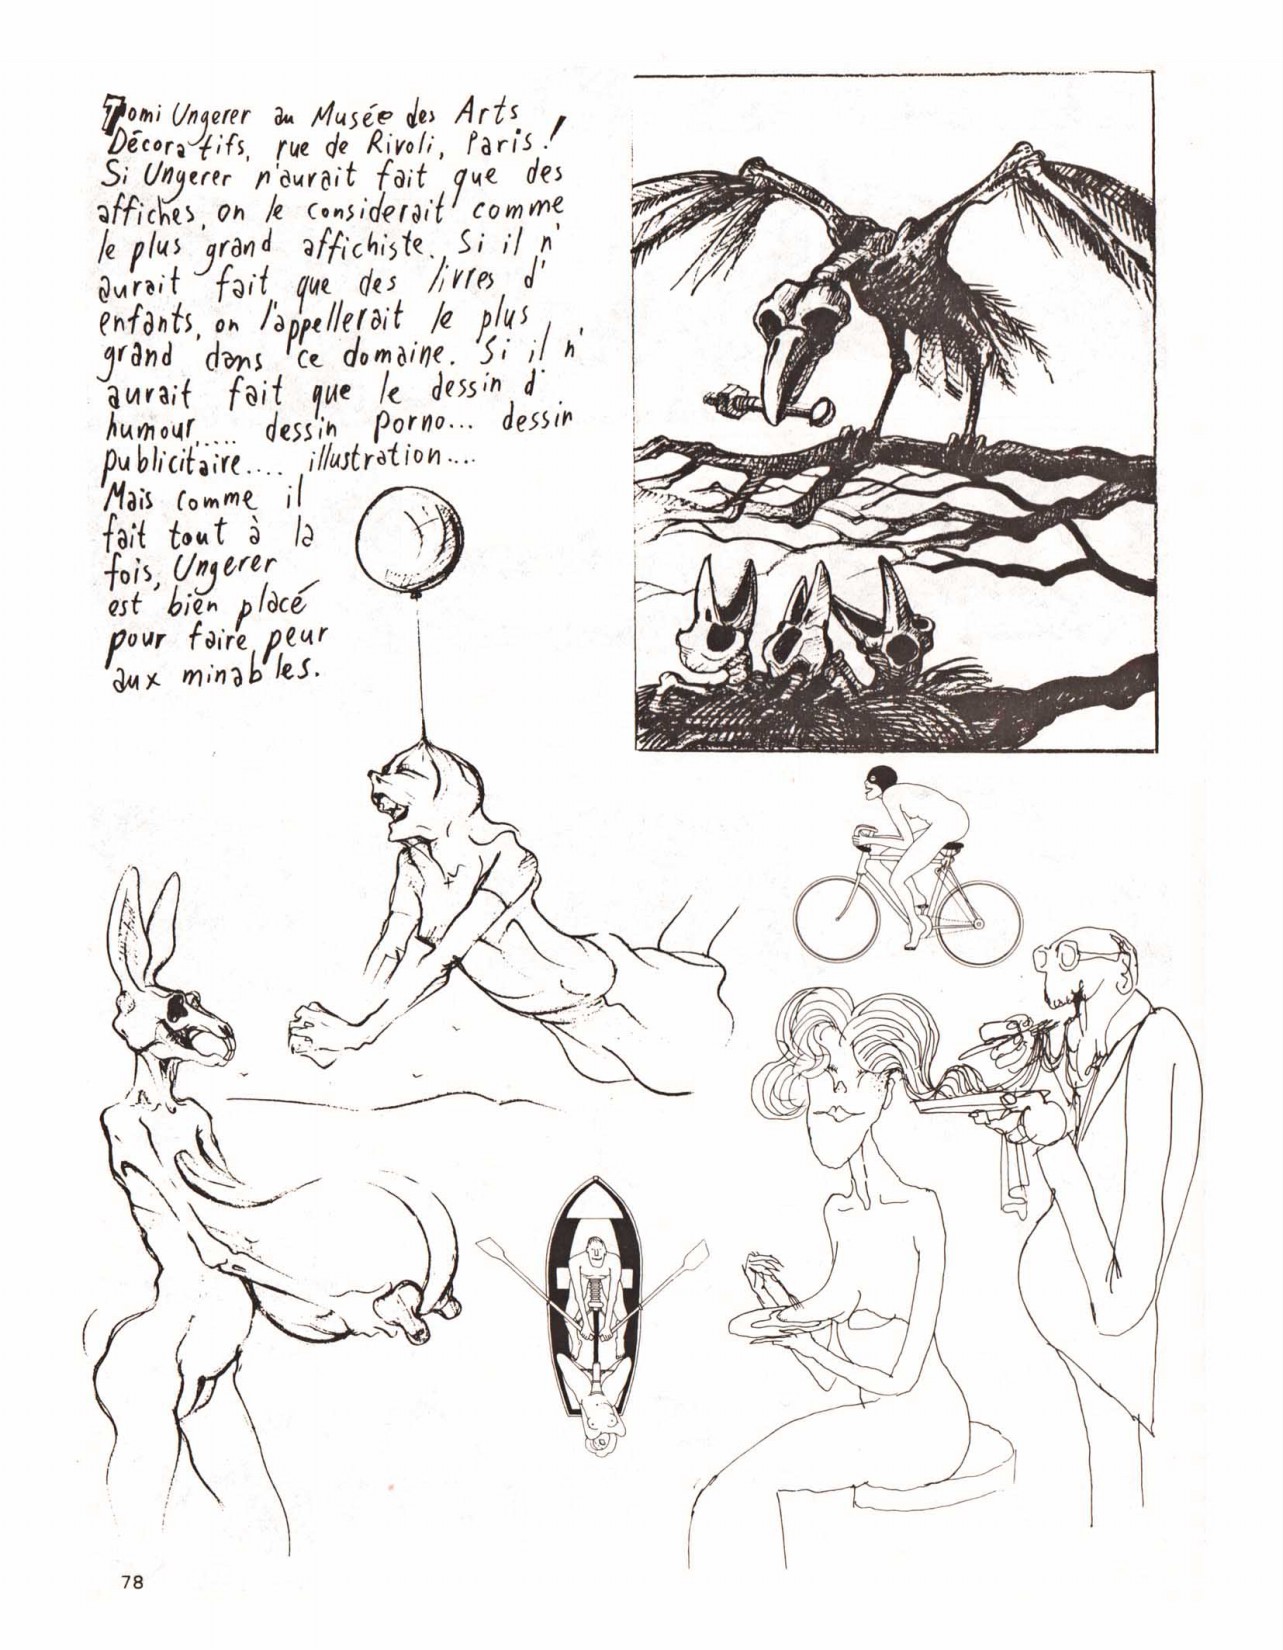 Tomi Ungerer au Musée des Arts
Décoratifs, rue de Rivoli, Paris!
Si Ungerer n'aurait fait que des
affiches, on le considerait comme
le plus grand affichiste. Si il n'
aurait fait que des livres d'
enfants, on l'appellerait le plus
grand dans ce domaine. Si il n'
aurait fait que le dessin d'
humour,.... dessin porno... dessin
publicitaire.... illustration....
Mais comme il
fait tout à la
fois, Ungerer
est bien placé
pour faire peur
aux minables.
78